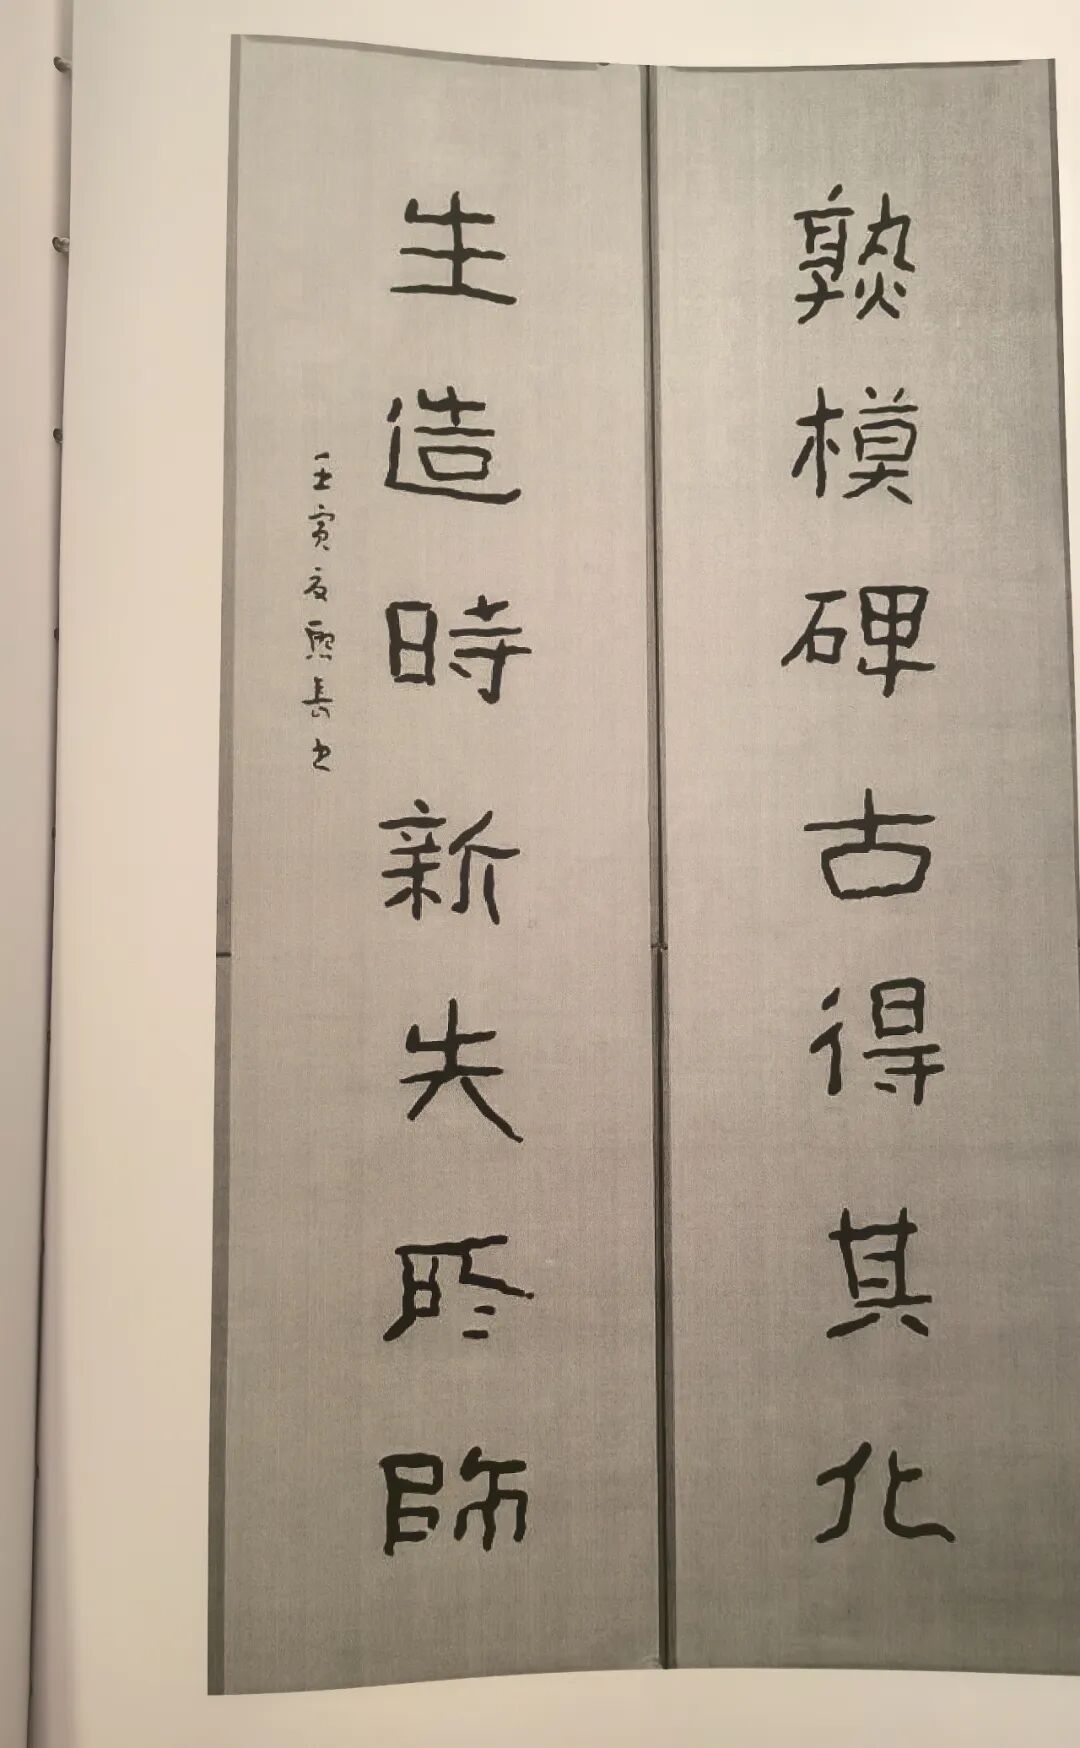 熟模碑古得其化
生造時新失所師
壬寅夏熙長书